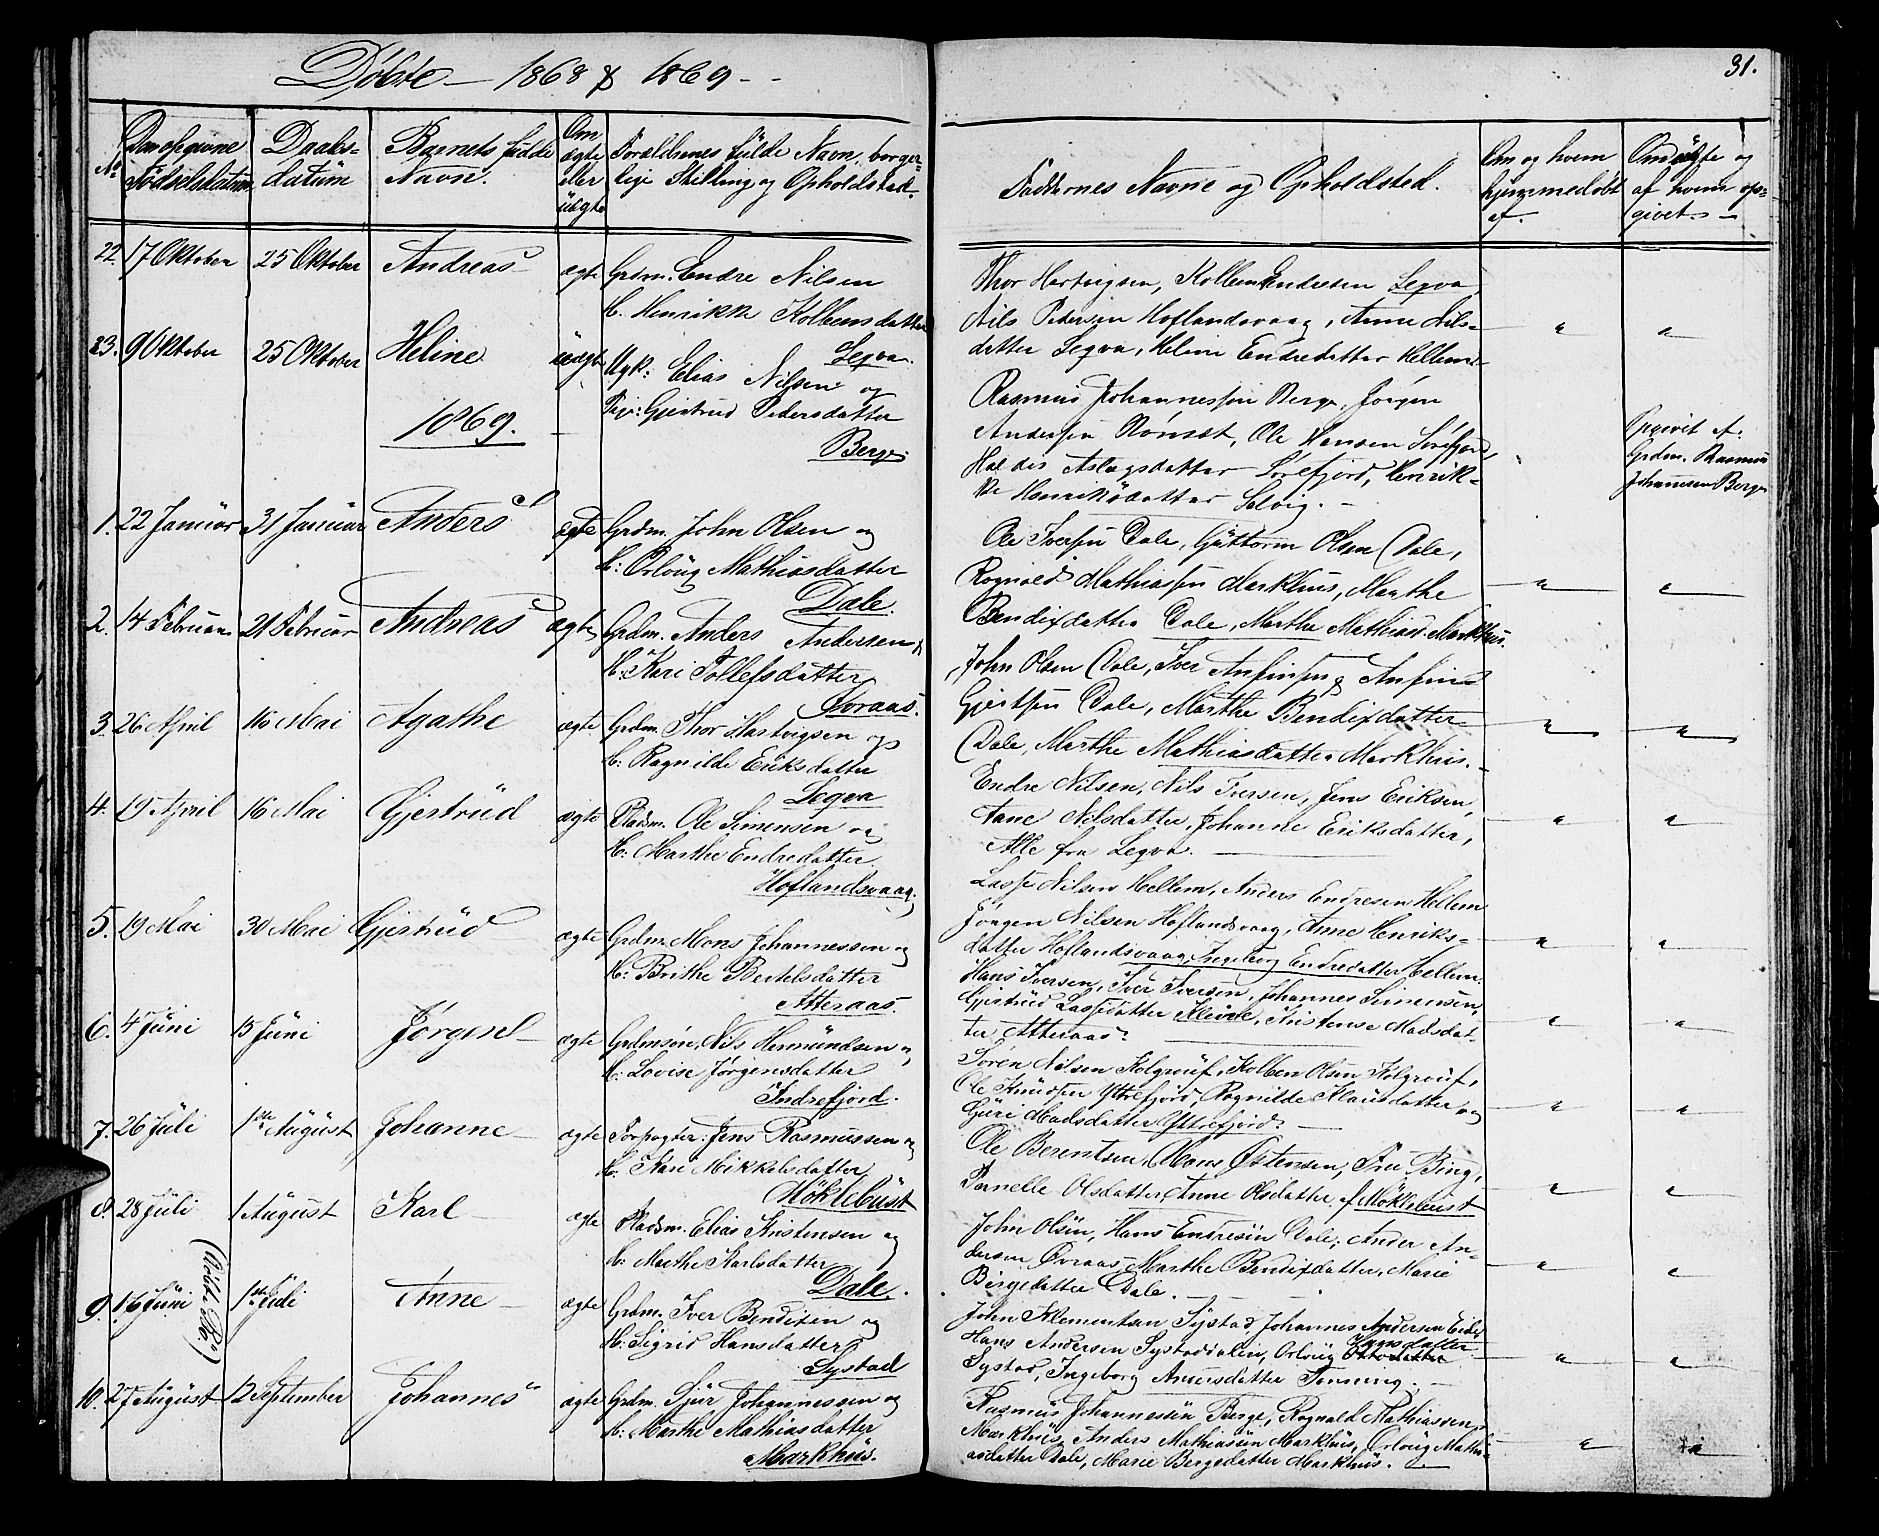 Döbte — 1868 & 1869 —
31.
No
Den opgivne
Fødselsdatum
Daabs-
datum
Barnets fulde
Navn.
Om
ægte
eller
uægte
Forældrenes fulde Navn, borger-
lige Stilling og Opholdsted.
Faddernes Navne og Opholdsted.
Om og hvem
hjemmedøbt
af.
Om ægte og
af hvem op-
givet. —
22. 17 Oktober 25 Oktober Andreas ægte Grdm. Endre Nilsen
H. Henrikke Kolbensdatter
Legva.
Thor Hartvigsen, Kolben Endresen Legva,
Nils Pedersen Hoflandsvaag, Anne Nils-
datter Legva, Heline Endredatter Hellem
23. 9 Oktober 25 Oktober Heline uægte Ugk: Elias Nilsen og
Pige: Gjertrud Pedersdatter
Berge
Rasmus Johannessen Berge, Jørgen
Andersen Rønset, Ole Hansen Sørefjord,
Haldis Aslagsdatter Sørefjord, Henrik-
ke Henriksdatter Selvig. —
Opgivet af
Grdm. Rasmus
Johannesen Berge
1869.
1. 22 Januar 31 Januar Anders ægte Grdm. John Olsen og
H: Orloug Mathiasdatter
Dale.
Ole Iversen Dale, Guttorm Olsen Dale,
Rognald Mathiassen Markhus, Marthe
Bendixdatter Dale, Marthe Mathiasd. Markhus.
2. 14 Februar 21 Februar Andreas ægte Grdm. Anders Andersen &
H: Kari Tollefsdatter
Øvraas.
John Olsen Dale, Iver Anfinsen, Anfin
Gjertsen Dale, Marthe Bendixdatter
Dale, Marthe Mathiasdatter Markhus.
3. 26 April 16 Mai Agathe ægte Grdm. Thor Hartvigsen og
H: Ragnilde Eriksdatter
Legva
Endre Nilsen, Nils Iversen, Jens Eriksen,
Anne Nilsdatter, Johanne Eriksdatter,
Alle fra Legva. —
4. 19 April 16 Mai Gjertrud ægte Pladsm. Ole Simensen og
H: Marthe Endredatter
Hoflandsvaag.
Lasse Nilsen Hellem, Anders Endresen Hellem
Jørgen Nilsen Hoflandsvaag, Anne Henriks-
datter Hoflandsvaag, Ingeborg Endredatter Hellem.
5. 19 Mai 30 Mai Gjertrud ægte Grdm. Mons Johannessen og
H: Brithe Bertelsdatter
Atteraas.
Hans Iversen, Iver Iversen, Johannes Simensen,
Gjertrud Lassedatter Kleive, Kristense Madsdat-
ter Atteraas.
6. 4 Juni 15 Juni Jørgen ægte Grdmsøn. Nils Hermundsen og
H: Lovise Jørgensdatter
Indrefjord.
Søren Nilsen Kolgrouf, Kolben Olsen Kolgrouf,
Ole Knudsen Yttrefjord, Ragnilde Klausdatter og
Guri Madsdatter Yttrefjord. —
7. 26 Juli 1ste August Johanne ægte Forpagter: Jens Rasmussen og
H: Kari Mikkelsdatter
Møklebust
Ole Berentsen, Mons Østensen, Fru Bing,
Pernelle Olsdatter, Anne Olsdatter af Møklebust
8. 28 Juli 1 August Karl ægte Pladsm. Elias Kristensen og
H: Marthe Karlsdatter
Dale.
John Olsen, Hans Endresen Dale, Ander An-
dersen Øvraas, Marthe Bendixdatter, Marie
Birgedatter Dale. —
9. 16 Juni 1ste Juli Anne ægte Grdm. Iver Bendixen og
H: Sigrid Hansdatter
Systad
John Klementsen Systad, Johannes Andersen Eide
Hans Andersen Systaddalen, Orloug Hansdatter
Systad, Ingeborg Anersdatter
10. 27 August 12 September Johannes ægte Grdm. Sjur Johannessen og
H: Marthe Mathiasdatter
Markhus.
Rasmus Johannessen Berge, Rognald Mathiassen
Markhus, Anders Mathiassen Markhus, Orloug Mathi-
asdatter Dale, Marie Bergedatter Markhus.